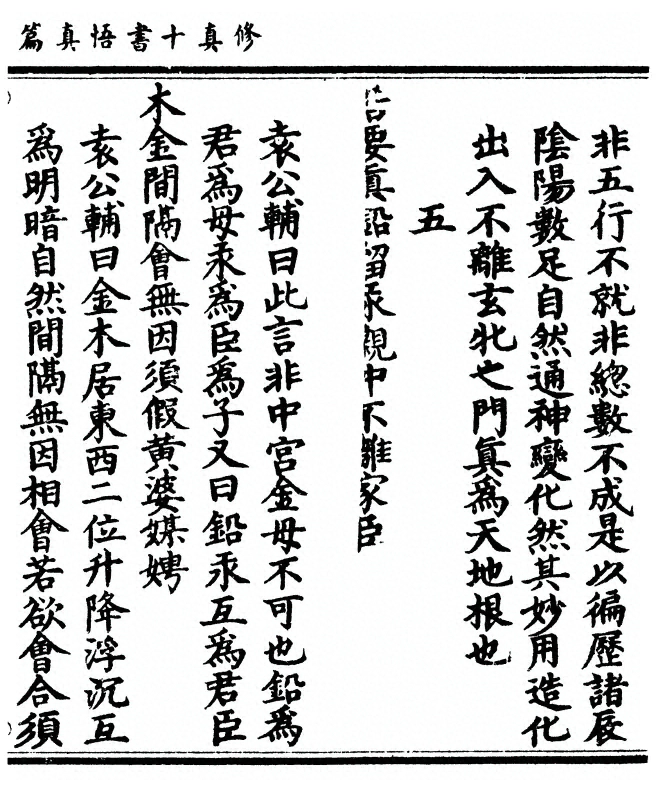 修真十書悟真篇
非五行不就非總數不成是以徧歷諸辰
陰陽數足自然通神變化然其妙用造化
出入不離玄牝也門眞爲天地根也
五
若要眞鉛留汞親中不離家臣
袁公輔曰此言非中宮金母不可也鉛爲
君爲母汞爲臣爲子又曰鉛汞互爲君臣
木金間隔會無因須假黃婆媒娉
袁公輔曰金木居東西二位升降浮沉互
爲明暗自然間隔無因相會若欲會合須